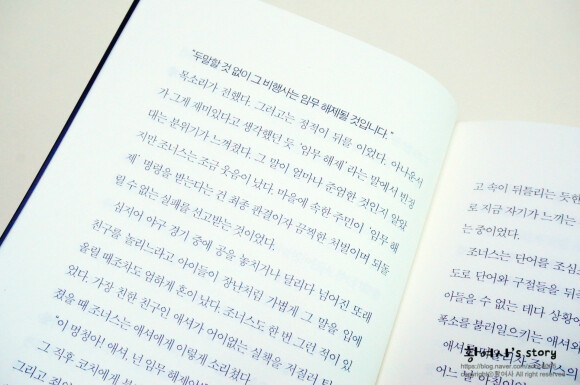 "두말할 것 없이 그 비행사는 임무 해제될 것입니다."
목소리가 전했다. 그리고는 정적이 뒤를 이었다. 아나운서
가 그게 재미있다고 생각했던 듯 '임무 해제'라는 말에서 빈정
대는 분위기가 느껴졌다. 그 말이 얼마나 준엄한 것인지 알았
지만 조너스는 조금 웃음이 났다. 마을에 속한 주민이 '임무 해
제' 명령을 받는다는 건 최종 판결이자 끔찍한 처벌이며 되돌
릴 수 없는 실패를 선고받는 것이었다.
심지어 야구 경기 중에 공을 놓치거나 달리다 넘어진 또래
친구를 놀리느라고 아이들이 장난처럼 가볍게 그 말을 입에
올릴 때조차도 엄하게 혼이 났다. 조너스도 한 번 그런 적이 있
었다. 가장 친한 친구인 애서가 어이없는 실책을 저질러 팀
졌을 때 조너스는 애서에게 이렇게 소리쳤다.
"이 멍청이! 애서, 넌 임무 해제야!"
그 직후 코치에게 불
그리고 죄
고 속이 뒤틀리는 듯한
로 지금 자기가 느끼는
는 중이었다.
조너스는 단어를 조심
도로 단어와 구절들을
아들을 수 없는 데다 상황
폭소를 불러일으키는 애서와
황여사's story
https://blog.naver.com/
copyright ⓒ황여사 All right reserved